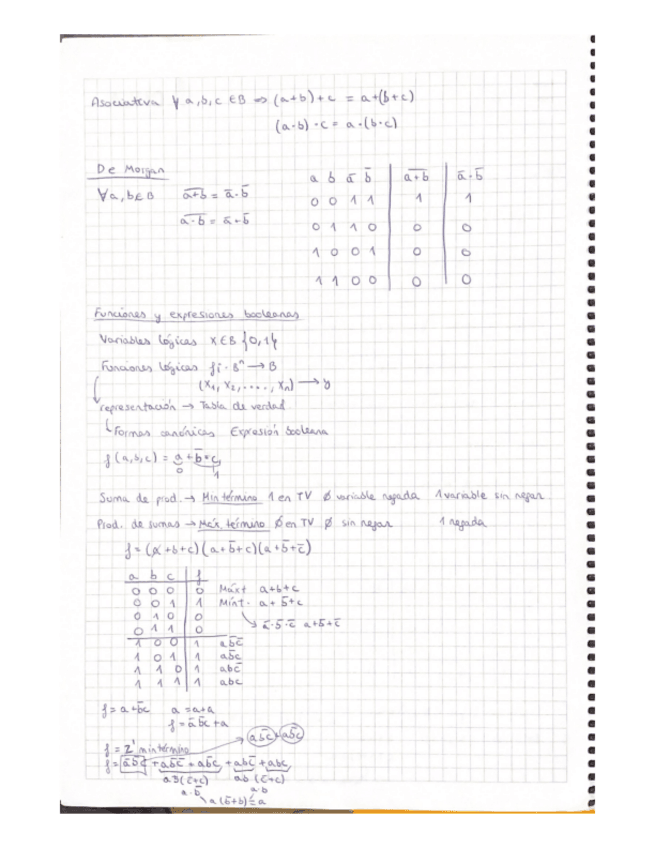 Asociativa ∀ a,b,c ∈ B ⇒ (a+b)+c = a+(b+c)
(a·b)·c = a·(b·c)
De Morgan
∀a,b∈B a̅+̅b̅ = a̅·b̅
a̅·̅b̅ = a̅+b̅
a b a̅ b̅ a̅+̅b̅ a̅·b̅
0 0 1 1 1 1
0 1 1 0 0 0
1 0 0 1 0 0
1 1 0 0 0 0
Funciones y expresiones booleanas
Variables lógicas x∈B {0,1}
Funciones lógicas f: Bⁿ → B
(x₁, x₂, ...., xₙ) → y
representación → Tabla de verdad
Formas canónicas Expresión booleana
f(a,b,c) = a + b̅·c
0 1
Suma de prod. → Min término 1 en TV 0 variable negada 1 variable sin negar
Prod. de sumas → Máx término 0 en TV 0 sin negar 1 negada
f = (a+b+c)(a+b̅+c)(a+b̅+c̅)
a b c f
0 0 0 0 Máxt a+b+c
0 0 1 1 Mint. a+b̅+c
0 1 0 0
0 1 1 0 a̅·b̅·c̅ a+b̅+c̅
1 0 0 1 ab̅c̅
1 0 1 1 ab̅c
1 1 0 1 abc̅
1 1 1 1 abc
f = a+b̅c a = a+a
f = a̅b̅c+a
ab̅c + a̅b̅c
f = Σ mintérmino
f = a̅b̅c + ab̅c̅ + ab̅c + abc̅ + abc
ab̅(c̅+c) ab(c̅+c)
a·b̅ a·b
a(b̅+b) = a